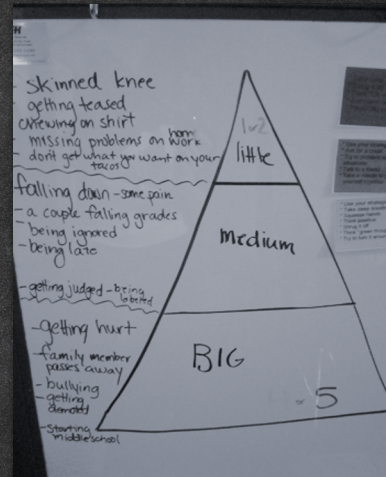 H
- skinned knee
- getting teased
chewing on shirt
missing problems on home work
- don't get what you want on your tacos
falling down - some pain
- a couple falling grades
- being ignored
- being late
- getting judged - being labeled
- getting hurt
- family member passes away
- bullying
- getting demoted
- Starting middleschool
1 or 2
little
medium
BIG
5